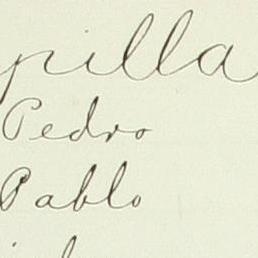 pilla
Pedro
Pablo